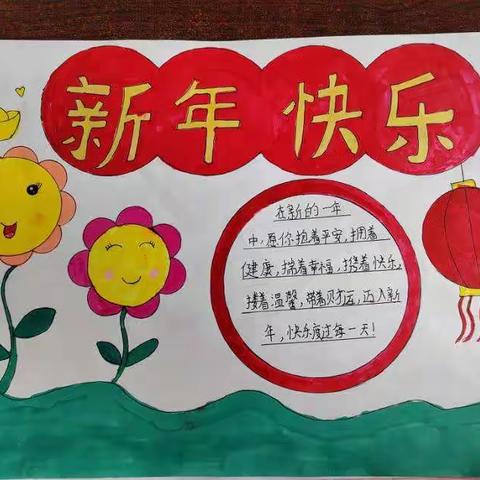 新年快乐
在新的一年
中,愿你抱着平安,拥着
健康,揣着幸福,携着快乐,
搂着温馨,带着财运,迈入新
年,快乐度过每一天!